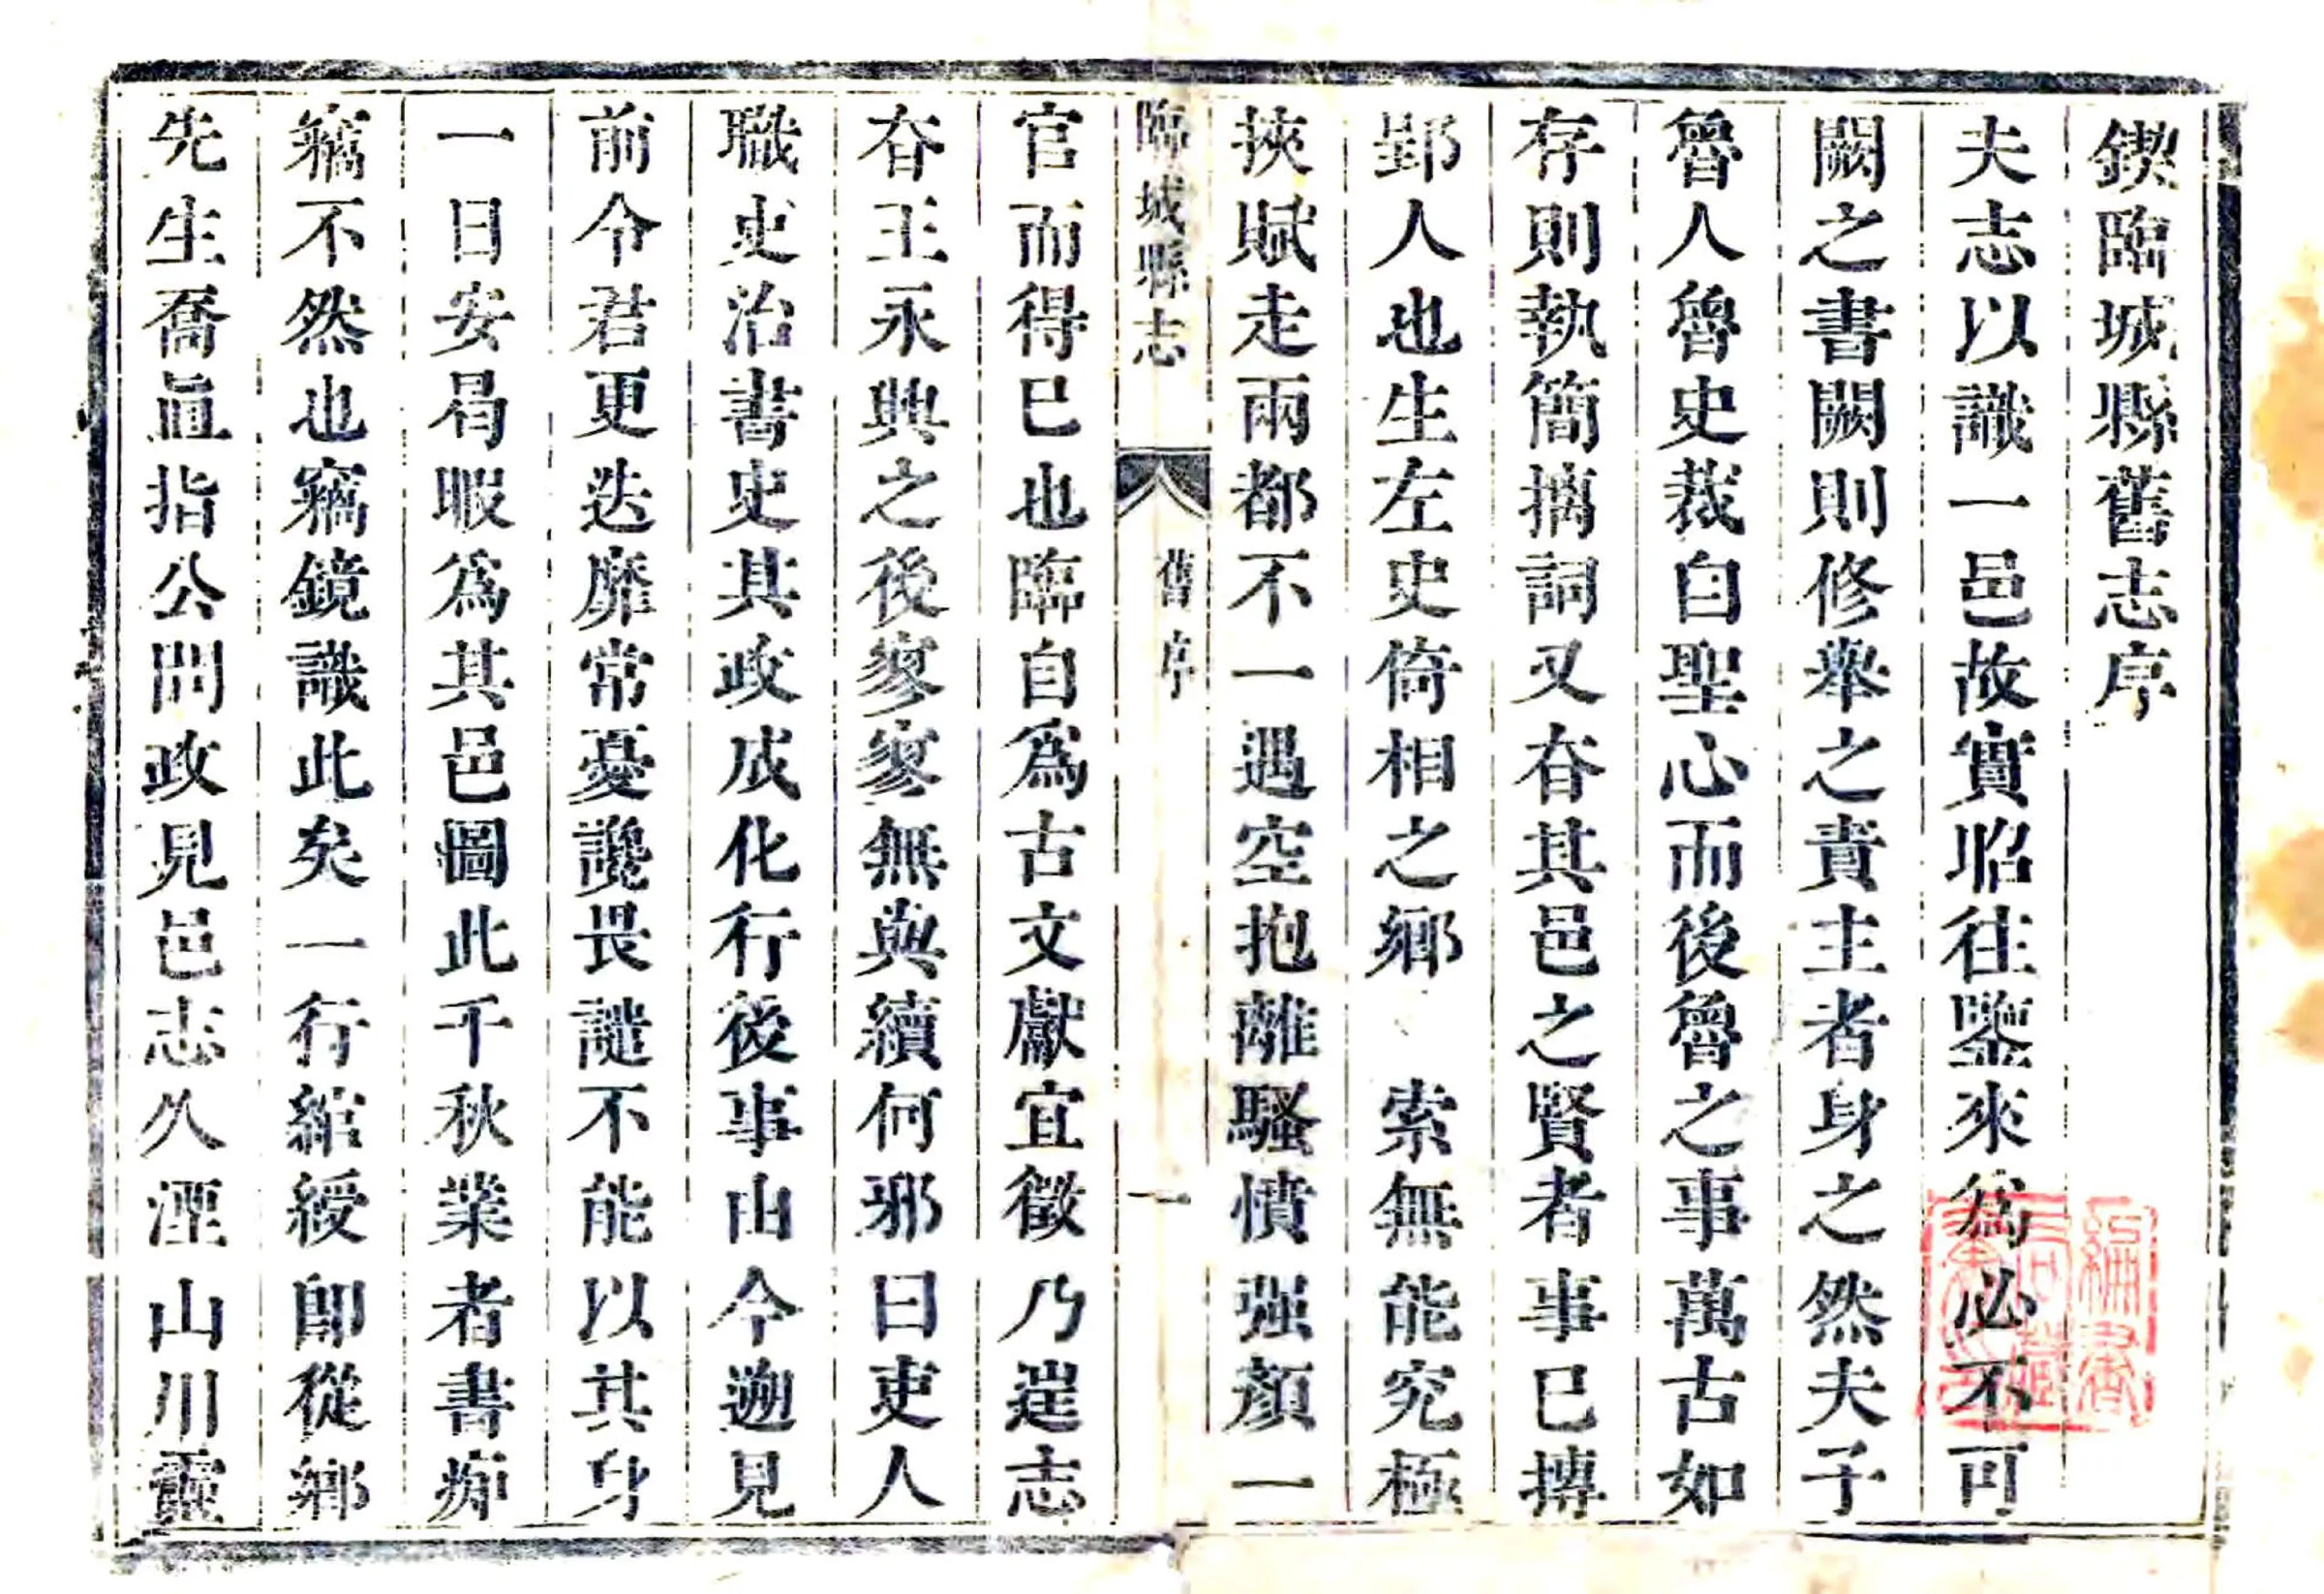 鍥臨城縣舊志序
夫志以識一邑故實昭往鑒來爲必不可
闕之書闕則修舉之責主者身之然夫子
魯人魯史裁自聖心而後魯之事萬古如
存則執簡摛詞又存其邑之賢者事已摶
郢人也生左史倚相之鄉 索無能究極
挾賦走兩都不一遇空抱離騷憤强顏一
臨城縣志
舊序
一
官而得巳也臨自爲古文獻宜徵乃遑志
存王永興之後寥寥無與續何邪曰吏人
職史治書史其政成化行後事由今遡見
前令君更迭靡常憂讒畏譴不能以其身
一日安曷暇爲其邑圖此千秋業者書痴
竊不然也竊鏡識此矣一行綰綬卽從鄉
先生喬直指公問政見邑志久湮山川靈